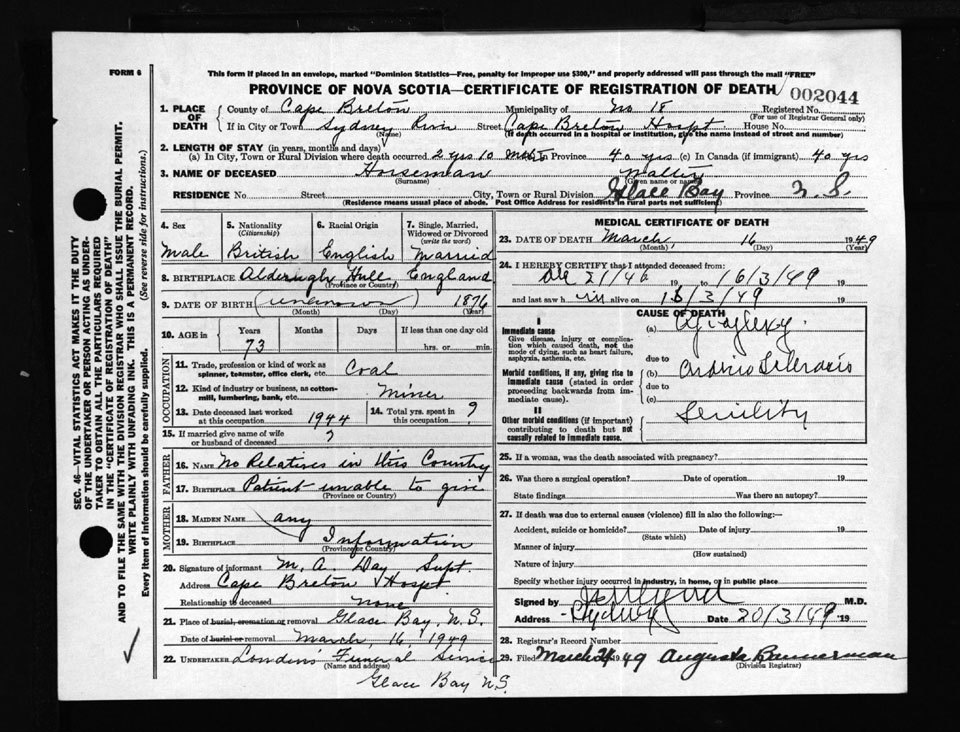 FORM 6
This form if placed in an envelope, marked "Dominion Statistics—Free, penalty for improper use $300," and properly addressed will pass through the mail "FREE"
PROVINCE OF NOVA SCOTIA—CERTIFICATE OF REGISTRATION OF DEATH
002044
1. PLACE OF DEATH
County of Cape Breton Municipality of No 18 Registered No.
(For use of Registrar General only)
If in City or Town Sydney River Street Cape Breton Hospt. House No.
(Name) (If death occurred in a hospital or institution, give the name instead of street and number)
2. LENGTH OF STAY (in years, months and days)
(a) In City, Town or Rural Division where death occurred 2 yrs 10 In Province 40 yrs (c) In Canada (if immigrant) 40 yrs
3. NAME OF DECEASED Horseman Walter
(Surname) (Given name or names)
RESIDENCE No. Street City, Town or Rural Division Glace Bay Province N. S.
(Residence means usual place of abode. Post Office Address for residents in rural parts not sufficient)
4. Sex
Male
5. Nationality
(Citizenship)
British
6. Racial Origin
English
7. Single, Married, Widowed or Divorced
(write the word)
Married
8. BIRTHPLACE Hull England
(Province or Country)
9. DATE OF BIRTH (unknown) 1876
(Month) (Day) (Year)
10. AGE in Years Months Days If less than one day old
73 hrs. or min.
OCCUPATION
11. Trade, profession or kind of work as spinner, teamster, office clerk, etc. Coal
12. Kind of industry or business, as cotton-mill, lumbering, bank, etc. Miner
13. Date deceased last worked at this occupation 1944
14. Total yrs. spent in this occupation ?
15. If married give name of wife or husband of deceased ?
FATHER
16. NAME No Relatives in this Country
17. BIRTHPLACE Patient unable to give
(Province or Country)
MOTHER
18. MAIDEN NAME any
19. BIRTHPLACE Information
(Province or Country)
20. Signature of informant M. A. Day Supt.
Address Cape Breton Hospt
Relationship to deceased none
21. Place of burial, cremation or removal Glace Bay, N.S.
Date of burial or removal March, 16, 1949
22. UNDERTAKER Funeral Service
(Name and address)
Glace Bay N.S.
MEDICAL CERTIFICATE OF DEATH
23. DATE OF DEATH March, 16 1949
(Month) (Day)
24. I HEREBY CERTIFY that I attended deceased from:
21/46 19 to 16/3/49 19
and last saw him alive on 16/3/49 19
CAUSE OF DEATH
I
Immediate cause
Give disease, injury or complication which caused death, not the mode of dying, such as heart failure, asphyxia, asthenia, etc.
(a) Apoplexy.
due to
Morbid conditions, if any, giving rise to immediate cause (stated in order proceeding backwards from immediate cause).
(b)
due to
(c)
II
Other morbid conditions (if important) contributing to death but not causally related to immediate cause.
Senility
25. If a woman, was the death associated with pregnancy?
26. Was there a surgical operation? Date of operation 19
State findings Was there an autopsy?
27. If death was due to external causes (violence) fill in also the following:—
Accident, suicide or homicide? Date of injury 19
(State which)
Manner of injury
(How sustained)
Nature of injury
Specify whether injury occurred in industry, in home, or in public place
Signed by M.D.
Address Sydney Date 20/3/49 19
28. Registrar's Record Number
29. Filed March 1949 Augusta Bannerman
(Division Registrar)
SEC. 46—VITAL STATISTICS ACT MAKES IT THE DUTY
OF THE UNDERTAKER OR PERSON ACTING AS UNDERTAKER TO OBTAIN ALL THE PARTICULARS REQUIRED
IN THE "CERTIFICATE OF REGISTRATION OF DEATH"
AND TO FILE THE SAME WITH THE DIVISION REGISTRAR WHO SHALL ISSUE THE BURIAL PERMIT.
WRITE PLAINLY WITH UNFADING INK. THIS IS A PERMANENT RECORD.
Every item of Information should be carefully supplied. (See reverse side for instructions.)